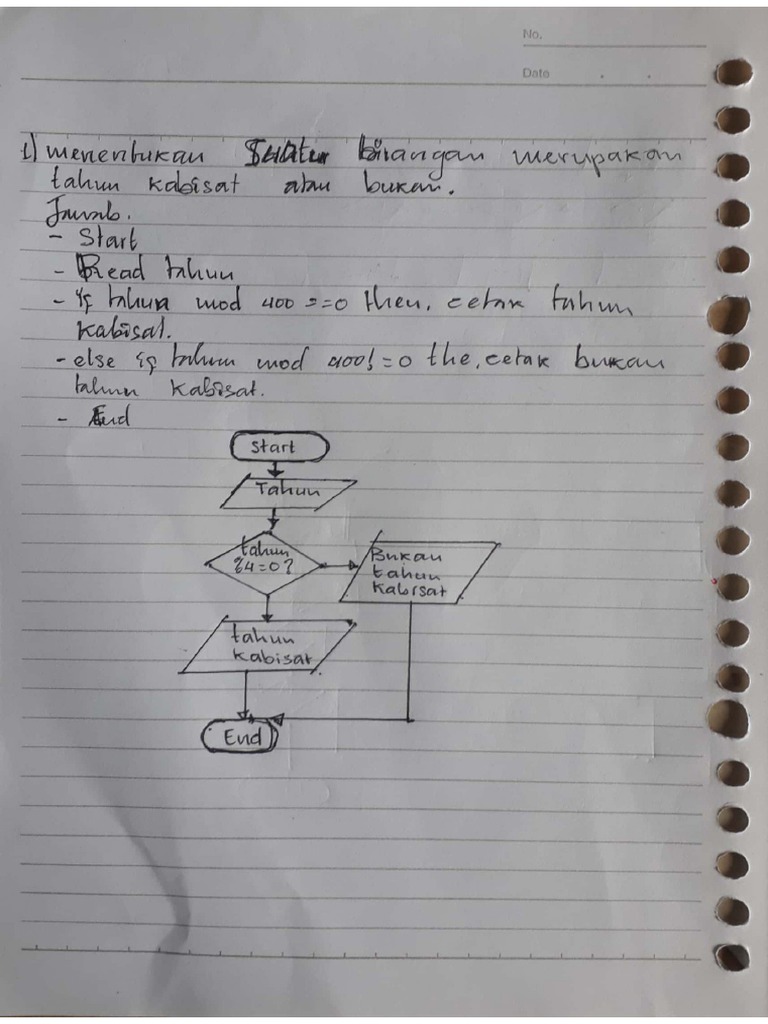 No.
Date
1) menentukan Suatu birangan merupakan
tahun kabisat atau bukan.
Jawab.
- Start
- Read tahun
- if tahun mod 400 ==0 then, cetak tahun
kabisat.
- else if tahun mod 400! =0 the, cetak bukan
tahun kabisat.
- End
Start
Tahun
tahun
%4=0?
Bukan
tahun
Kabisat
tahun
kabisat
End